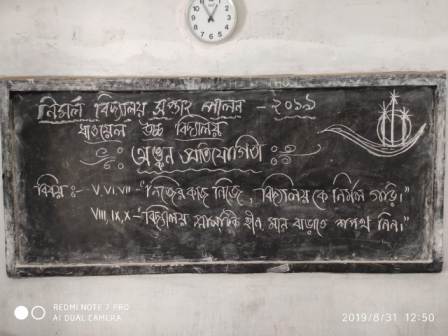 নির্মল বিদ্যালয় সপ্তাহ পালন - ২০১৯
উচ্চ বিদ্যালয়
অঙ্কন প্রতিযোগিতা
বিষয় :- V. VI. VII - "নিজের কাজ নিজে, বিদ্যালয় কে নির্মল গড়ি।"
VIII, IX, X - "বিদ্যালয় প্লাসটিক হীন, মান বাড়াতে শপথ নিন।"
REDMI NOTE 7 PRO
AI DUAL CAMERA
2019/8/31 12:50